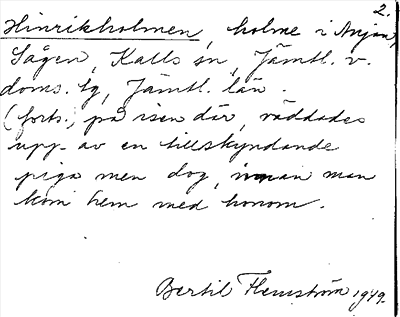 2.
Hinrikholmen, holme i Anjan,
Sågen, Kalls sn, Jämtl. v.
doms. tg, Jämtl. län.
(forts.) på isen där, räddades
upp av en tillskyndande
piga men dog, innan man
kom hem med honom.
Bertil Flemström 1979.